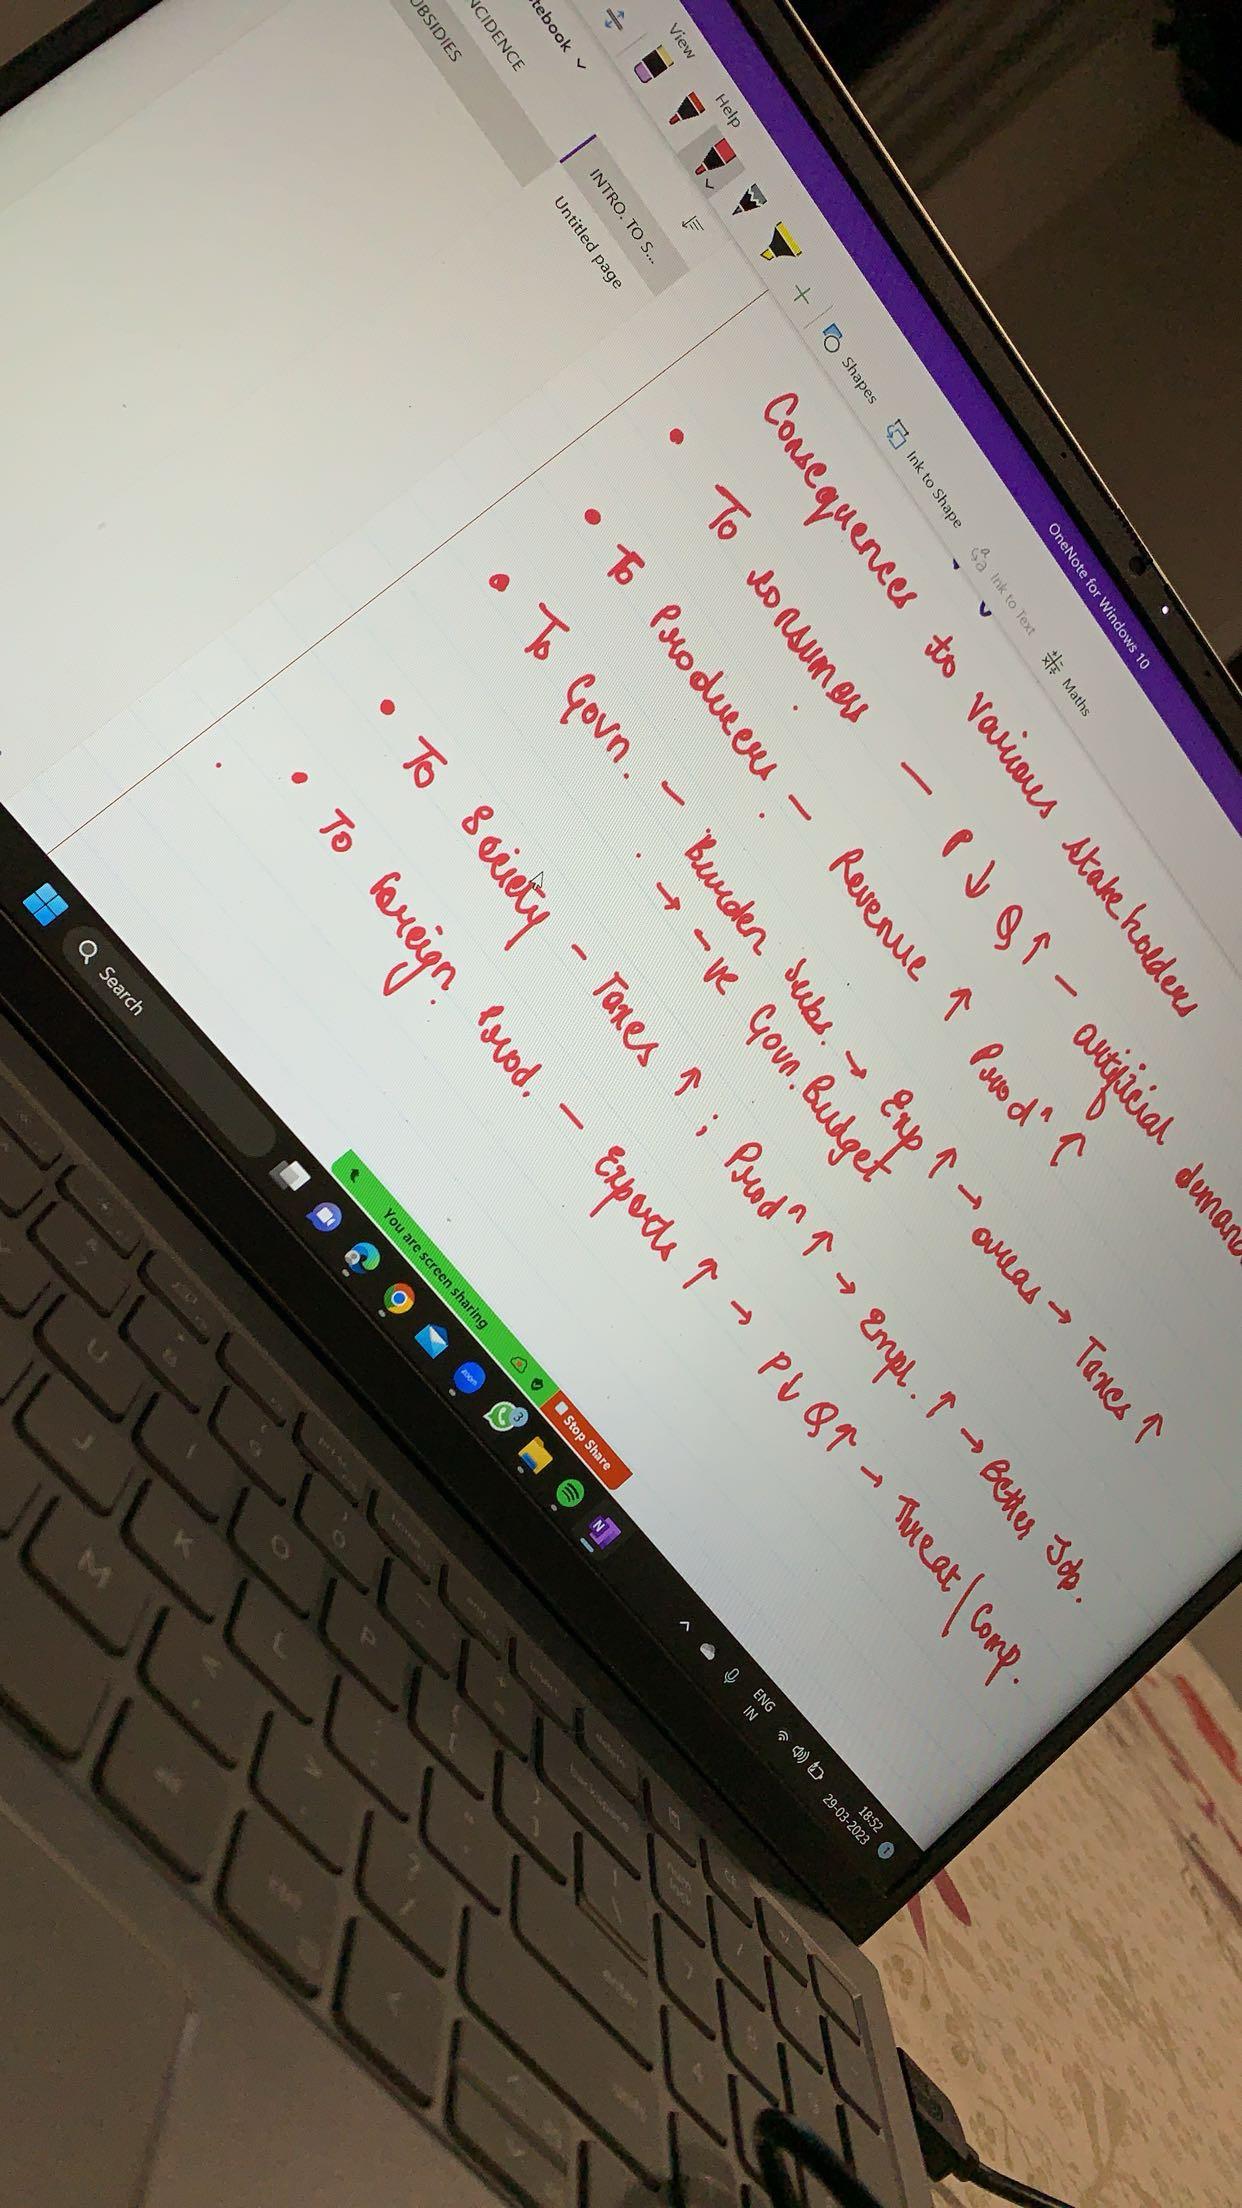 OneNote for Windows 10
View
Help
Shapes
Ink to Shape
Ink to Text
Maths
tebook
NCIDENCE
UBSIDIES
INTRO. TO S...
Untitled page
Consequences to various stakeholders
• To consumers – P ↓ Q ↑ – artificial demand
• To Producers – Revenue ↑ Prodⁿ ↑
• To Govn. – Burden Subs. → Exp ↑ → areas → Taxes ↑
→ -ve Govn. Budget
• To Society – Taxes ↑ ; Prodⁿ ↑ → Empl. ↑ → Better Job.
• To foreign Prod. – Exports ↑ → P↓ Q↑ → Threat / Comp.
You are screen sharing
Stop Share
Search
zoom
3
N
ENG
IN
18:52
29-03-2023
1
U
J
M
I
K
O
L
P